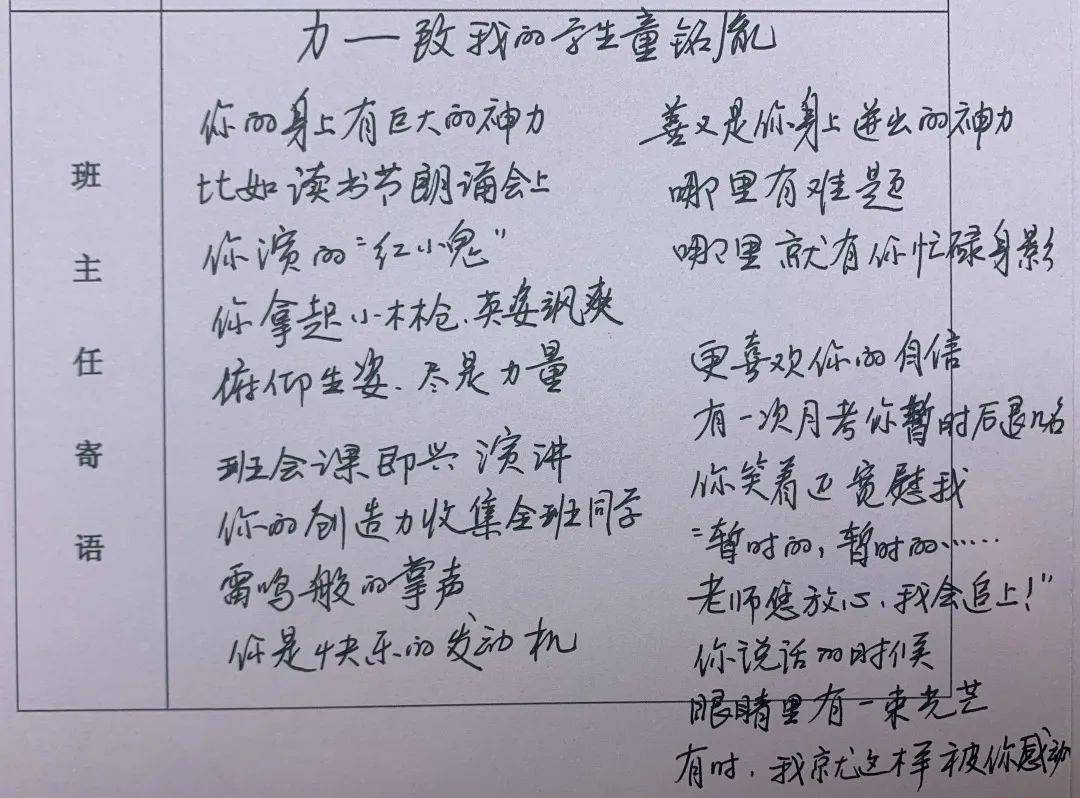 力——致我的学生童铭胤
班主任寄语
你的身上有巨大的神力
比如读书节朗诵会上
你演的"红小鬼"
你拿起小木枪、英姿飒爽
俯仰生姿、尽是力量
班会课即兴演讲
你的创造力收集全班同学
雷鸣般的掌声
你是快乐的发动机
善又是你身上迸出的神力
哪里有难题
哪里就有你忙碌身影
更喜欢你的自信
有一次月考你暂时后退几名
你笑着还宽慰我
"暂时的，暂时的……
老师您放心、我会追上！"
你说话的时候
眼睛里有一束光芒
有时、我就这样被你感动